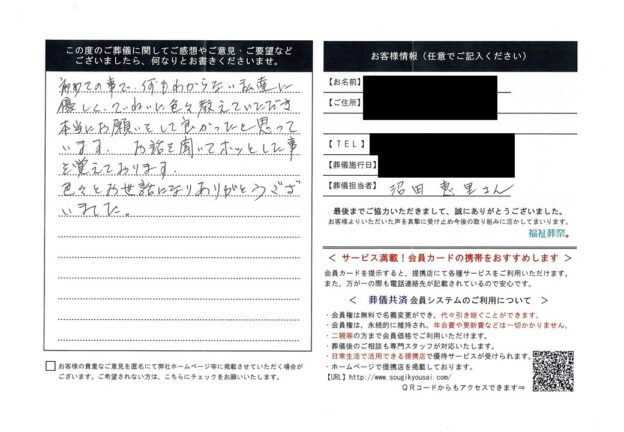 この度のご葬儀に関してご感想やご意見・ご要望など
ございましたら、何なりとお書きくださいませ。
初めての事で、何もわからない私達に
優しく、ていねいに色々教えていただき
本当にお願いをして良かったと思って
います。 お話を聞いてホッとした事
を覚えております。
色々とお世話になりありがとうござ
いました。
お客様の貴重なご意見を匿名にて弊社ホームページ等に掲載させていただく場合が
ございます。ご希望されない方は、こちらにチェックをお願いします。
お客様情報（任意でご記入ください）
【お名前】
【ご住所】
【TEL】
【葬儀施行日】
【葬儀担当者】 沼田 恵里さん
最後までご協力いただきまして、誠にありがとうございました。
お客様よりいただいた声を真摯に受け止め今後の取り組みに活かしてまいります。
福祉葬祭。
＜ サービス満載！会員カードの携帯をおすすめします ＞
会員カードを提示すると、提携店にて各種サービスをご利用いただけます。
また、万が一の際も電話連絡先が記載されているので安心です。
＜ 葬儀共済 会員システムのご利用について ＞
・会員権は無料で名義変更ができ、代々引き継ぐことができます。
・会員権は、永続的に維持され、年会費や更新費などは一切かかりません。
・二親等の方まで会員価格でご利用いただけます。
・葬儀後のご相談も専門スタッフが対応いたします。
・日常生活で活用できる提携店で優待サービスが受けられます。
・ホームページで提携店を掲載しております。
【URL】http://www.sougikyousai.com/
QRコードからもアクセスできます⇒